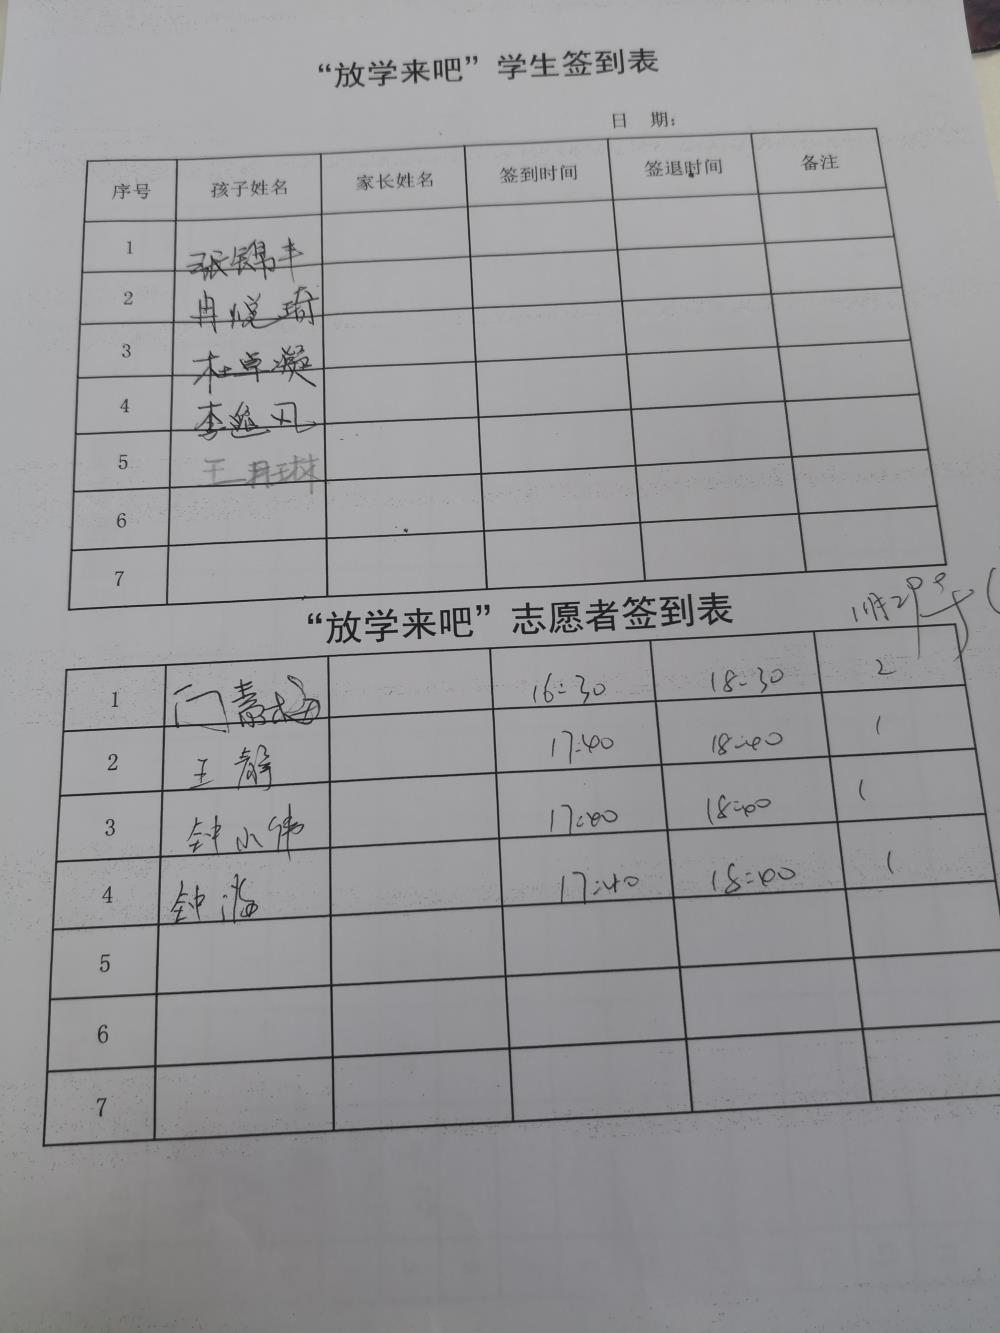 “放学来吧”学生签到表
日 期：
序号 孩子姓名 家长姓名 签到时间 签退时间 备注
1 张锦丰
2 冉悦琦
3 杜卓凝
4 李逸凡
5 王丹琳
6
7
“放学来吧”志愿者签到表
1 门青梅 16:30 18:30 2
2 王静 17:40 18:40 1
3 钟小伟 17:40 18:40 1
4 钟 17:40 18:40 1
5
6
7